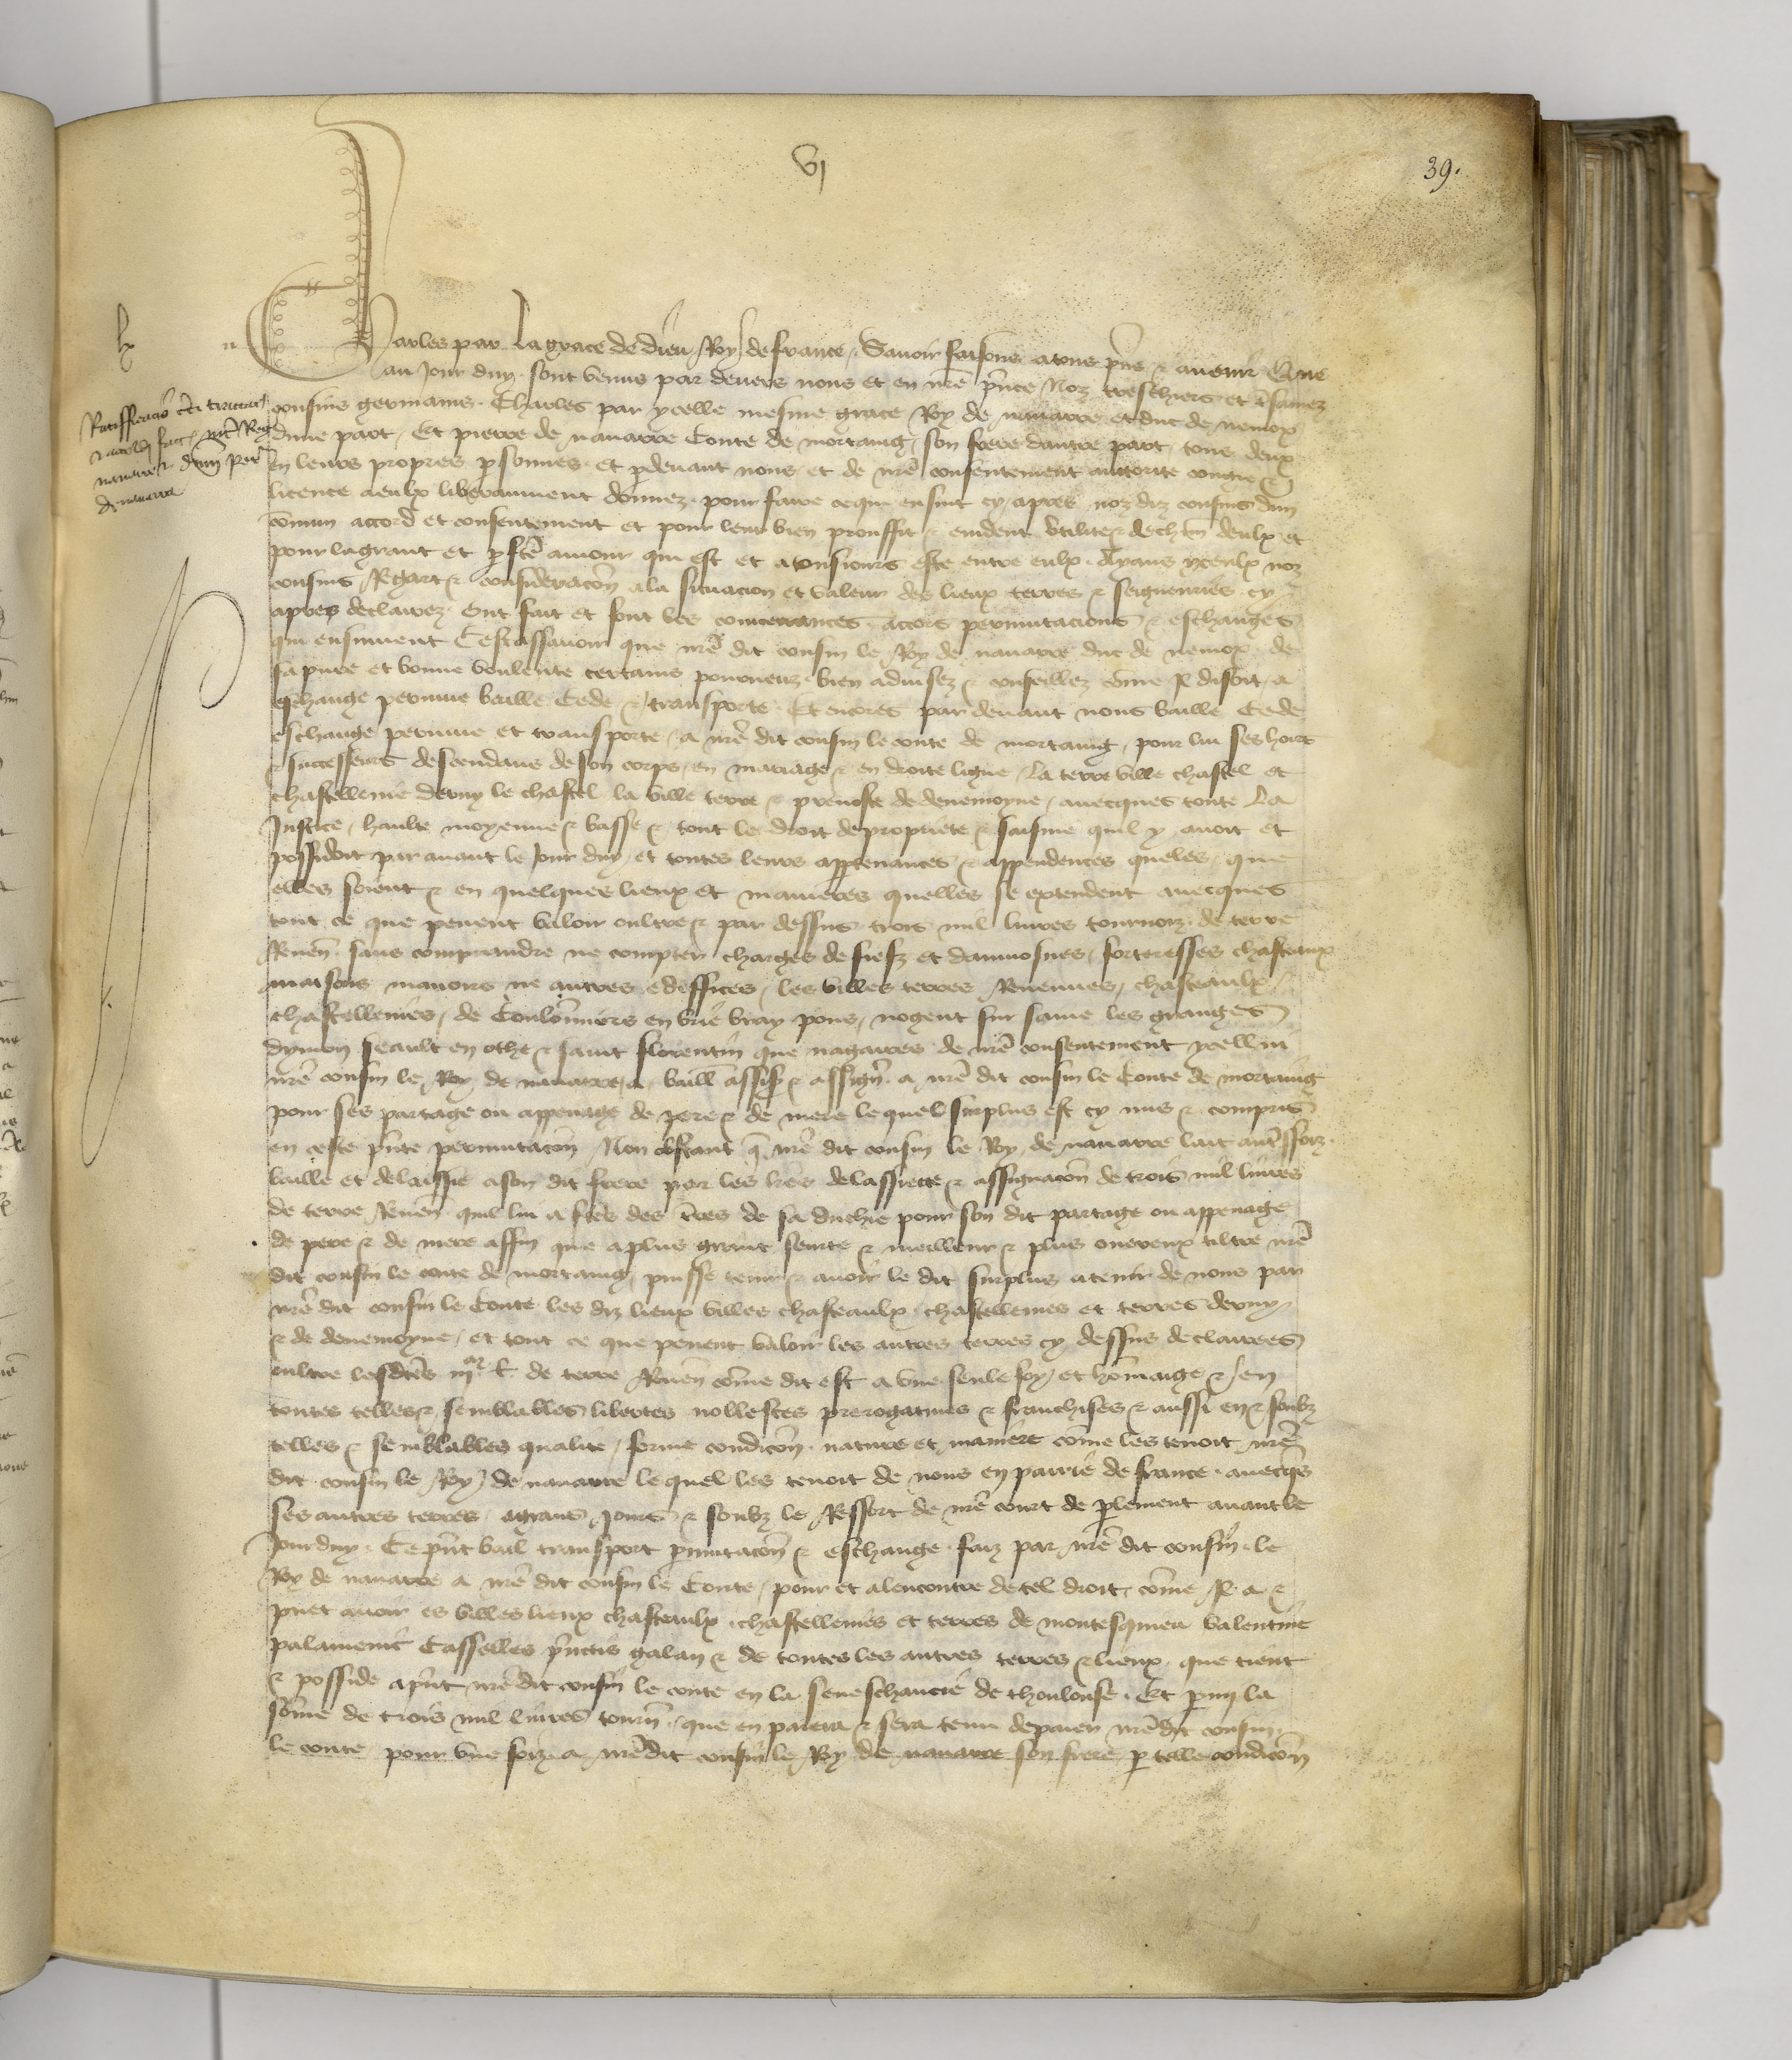 VI
39.
Charles par la grace de dieu Roy de france, Savoir faisons a tous p̄ns et avenir Que
au Jour duy sont venus par devers nous et en nr̄e p̄nce Noz treschiers et
cousins germains. Charles par ycelle mesme grace Roy de navarre et duc de nemox
dune part, Et pierre de navarre Conte de mortaing, son frere dautre part, tous deux
en leurs propres p̄sonnes, et p̄devant nous et de nr̄e consentement auctorite congie et
licence a eulx liberaument donnez, pour faire ce qui ensuit cy apres noz diz cousins dun
cōmun accord et consentement et pour leur bien prouffit et evident utilite de chūn deulx et
pour la grant et p̄fcē amour qui est et a tousiours este entre eulx. Ayans yceulx noz
cousins Regart et consideracōn a la situacion et valeur des lieux terres et seigneuries cy
apres declairez. Ont fait et font les convenances accors permutacions et eschanges
qui ensuivent Cest assavoir que nr̄e dit cousin le Roy de navarre duc de nemox, de
sa pure et bonne voulente certains pourveuz bien advisez et conseillez cōme Il disoit, a
eschange permue baille Cede et transporte. Et encores par devant nous baille Cede
eschange permue et transporte, a nr̄e dit cousin le conte de mortaing, pour lui ses hoirs
et successeurs descendans de son corps, en mariage et en droite ligne, La terre ville chastel et
chastellenie dervy le chastel la ville terre et prevoste de denemoyne, avecques toute La
Justice, haulte moyenne et basse et tout le droit de propriete et saisine quil y avoit et
possidoit par avant le Jour duy, et toutes leurs appartenances et appendences queles, que
elles soient et en quelques lieux et manieres quelles se extendent avecques
tout ce que pevent valoir oultre et par dessus trois mil livres tournoiz de terre
Revēn. sans comprandre ne compter charges de fiefz et daumosnes, forteresses chasteaux
maisons manoirs ne autres ediffices, les villes terres Revenues, chasteaulx
chastellenies, de Coulōmiers en brie bray pons, nogent sur saine les granges
dymon seault en othe et saint florentin que nagaires de nr̄e consentement ycellui
nr̄e cousin le Roy de navarre, a baill assiz et assign̄. a nr̄e dit cousin le Conte de mortaing
pour ses partage ou appenage de pere et de mere lequel surplus est cy mis et compris
en ceste p̄nte permutacōn Non obstant q̄ nr̄e dit cousin le Roy de navarre lait autresfoiz
baille et delaissie a son dit frere par les lr̄es de lassiecte et assignacōn de trois mil livres
de terre Revēn. quil lui a fcēs des tr̄es de sa duchie pour son dit partage ou appenage
de pere et de mere affin que a plus grant seurte et meilleur et plus onereux tiltre nr̄e
dit cousin le conte de mortaing, puisse tenir et avoir le dit surplus a tenir de nous par
nr̄e dit cousin le Conte les diz lieux villes chasteaulx, chastellenies et terres dervy
et de denemoyne, et tout ce que pevent valoir les autres terres cy dessus declairees
oultre lesdc̄es iijᵐ ł. de terre Revēn cōme dit est a une seule foy et hōmaige et en
toutes telles et semblables libertes nollestes prerogatives et franchises et aussi en et soubz
telles et semblables qualite, forme condicōn. nature et maniere cōme les tenoit nr̄e
dit cousin le Roy de navarre lequel les tenoit de nous en parrie de france. avecq̄s
ses autres terres, a grans Jours et soubz le Ressort de nr̄e court de p̄lement avant le
Jour duy. Ce p̄nt bail transport p̄mutacōn et eschange faiz par nr̄e dit cousin le
Roy de navarre a nr̄e dit cousin le Conte, pour et a lencontre de tel droit, cōme Il a et
puet avoir es villes lieux chasteaulx, chastellenies et terres de montesquieu valentine
palamenit Casselles galan et de toutes les autres terres et lieux, que tient
et posside a p̄nt nr̄e dit cousin le conte en la seneschaucie de thoulouse. Et p̄my la
sōme de trois mil livres tourn̄. que en paiera et sera tenu de paier nr̄e dit cousin
le conte pour une foiz. a nr̄e dit cousin le Roy de navarre son frere, p̄ telle condicōn